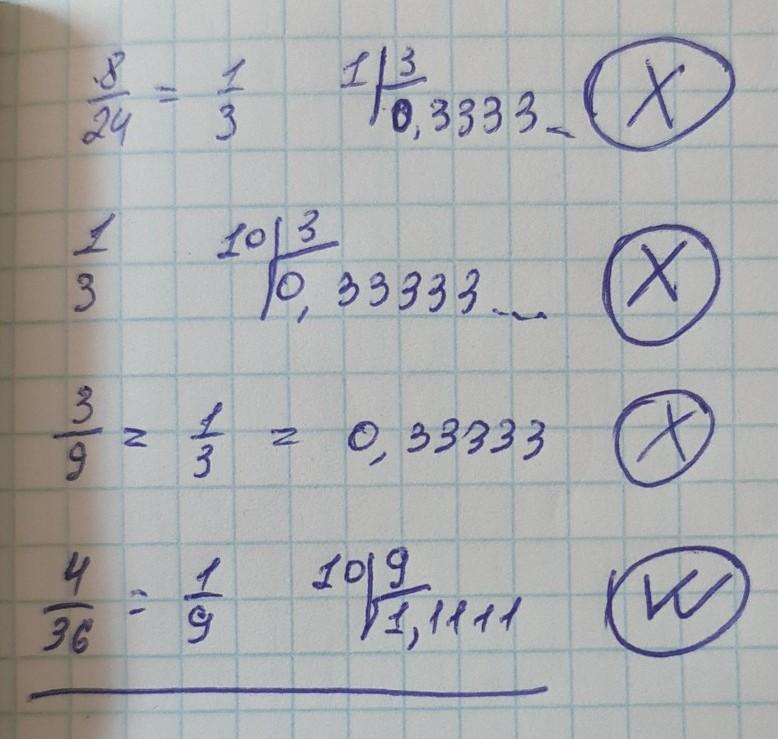 8/24 = 1/3 1|3 0,3333... X
1/3 10|3 0,33333... X
3/9 = 1/3 = 0,33333 X
4/36 = 1/9 10|9 1,1111 W